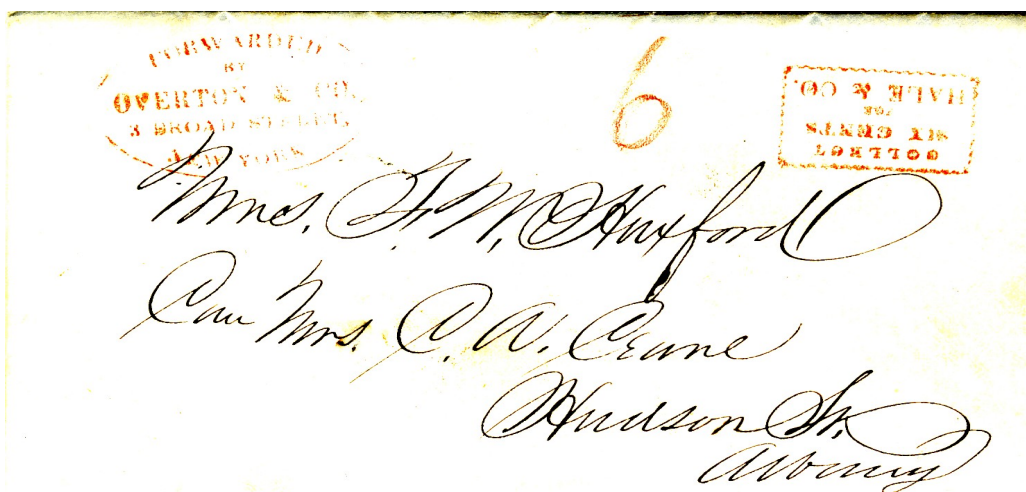 FORWARDED
BY
OVERTON & CO.
3 BROAD STREET,
NEW YORK
6
COLLECT
SIX CENTS
FOR
HALE & CO.
Mrs. F. M. Huxford
Care Mrs. C. A. Crane
Hudson St.
Albany